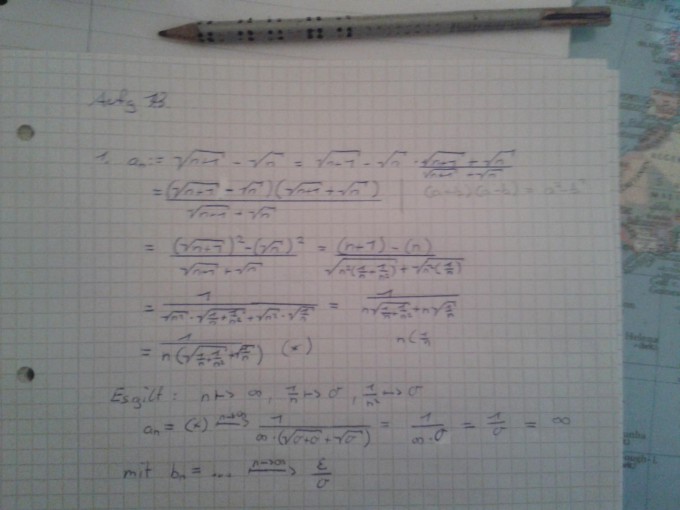 Aufg 13.
1. aₙ := √(n+1) - √n = √(n+1) - √n · (√(n+1) + √n)/(√(n+1) + √n)
= ((√(n+1) - √n)(√(n+1) + √n))/(√(n+1) + √n) | (a+b)(a-b) = a²-b²
= ((√(n+1))² - (√n)²)/(√(n+1) + √n) = ((n+1) - (n))/(√(n²(1/n + 1/n²)) + √(n²(1/n)))
= 1/(√n² · √(1/n + 1/n²) + √n² · √(1/n)) = 1/(n√(1/n + 1/n²) + n√(1/n))
= 1/(n(√(1/n + 1/n²) + √(1/n))) (*) n(1/n
Es gilt: n ↦ ∞, 1/n ↦ 0, 1/n² ↦ 0
aₙ = (*) —n→∞→ 1/(∞·(√(0+0) + √0)) = 1/(∞·0) = 1/0 = ∞
mit bₙ = ... —n→∞→ ε/0